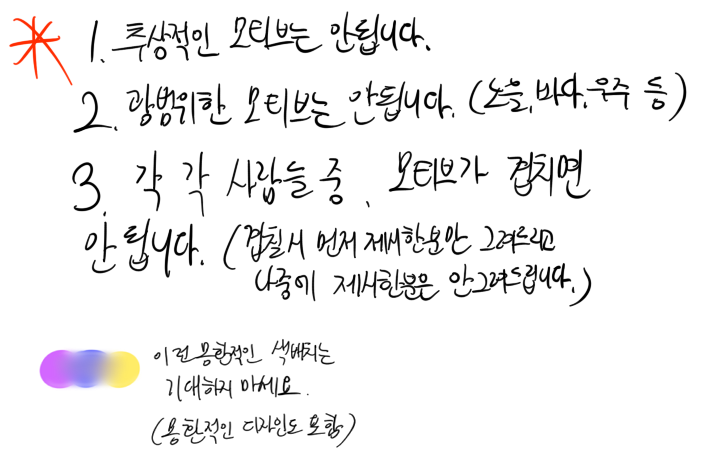 1. 추상적인 모티브는 안됩니다.
2. 광범위한 모티브는 안됩니다. (노을, 바다, 우주 등)
3. 각 각 사람들 중, 모티브가 겹치면
안 됩니다. (겹칠시 먼저 제시한분만 그려드리고
나중에 제시한분은 안그려드립니다.)
이런 몽환적인 색배치는
기대하지 마세요.
(몽환적인 디자인도 포함)